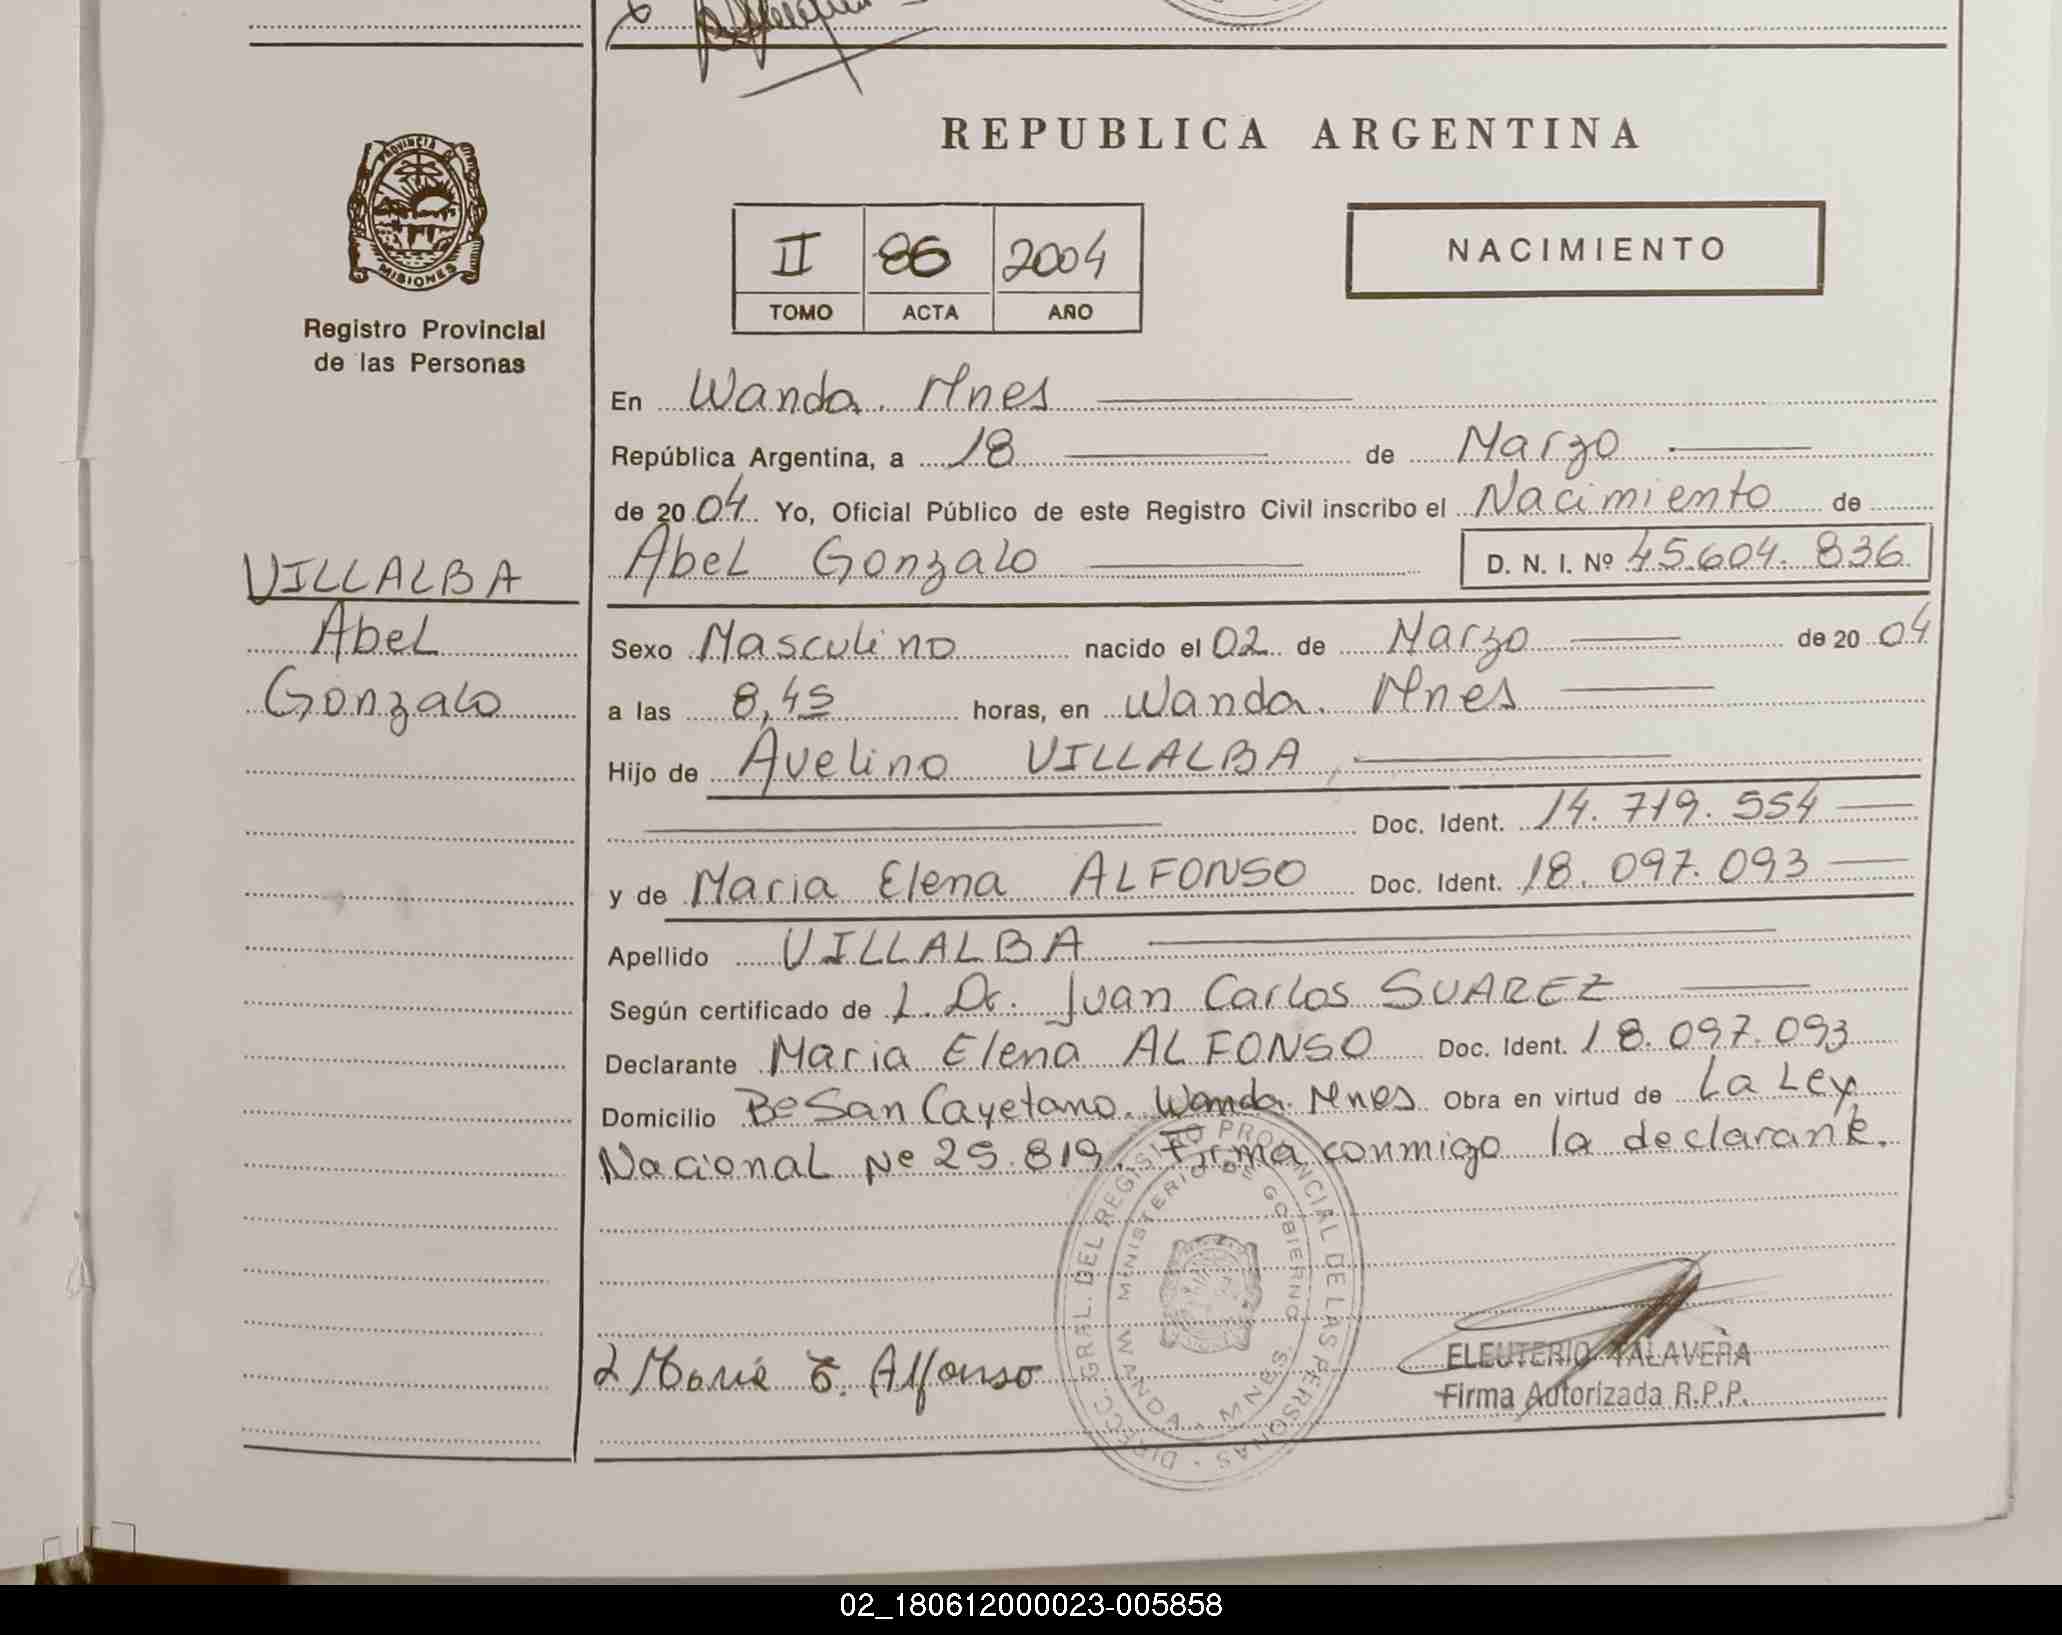 REPUBLICA ARGENTINA
PROVINCIA DE
MISIONES
Registro Provincial
de las Personas
II 86 2004
TOMO ACTA AÑO
NACIMIENTO
En Wanda. Mnes
República Argentina, a 18 de Marzo
de 2004 Yo, Oficial Público de este Registro Civil inscribo el Nacimiento de
Abel Gonzalo D. N. I. Nº 45.604.836
VILLALBA
Abel
Gonzalo
Sexo Masculino nacido el 02 de Marzo de 2004
a las 8,45 horas, en Wanda. Mnes
Hijo de Avelino VILLALBA,
Doc. Ident. 14.719.554
y de Maria Elena ALFONSO Doc. Ident. 18.097.093
Apellido VILLALBA
Según certificado de L. Dr. Juan Carlos SUAREZ
Declarante Maria Elena ALFONSO Doc. Ident. 18.097.093
Domicilio Bº San Cayetano. Wanda. Mnes Obra en virtud de La Ley
Nacional Nº 25.819. Firma conmigo la declarante.
DIRECC. GRAL. DEL REGISTRO PROVINCIAL DE LAS PERSONAS
MINISTERIO DE GOBIERNO
WANDA - MNES.
Maria E. Alfonso
ELEUTERIO TALAVERA
Firma Autorizada R.P.P.
02_180612000023-005858